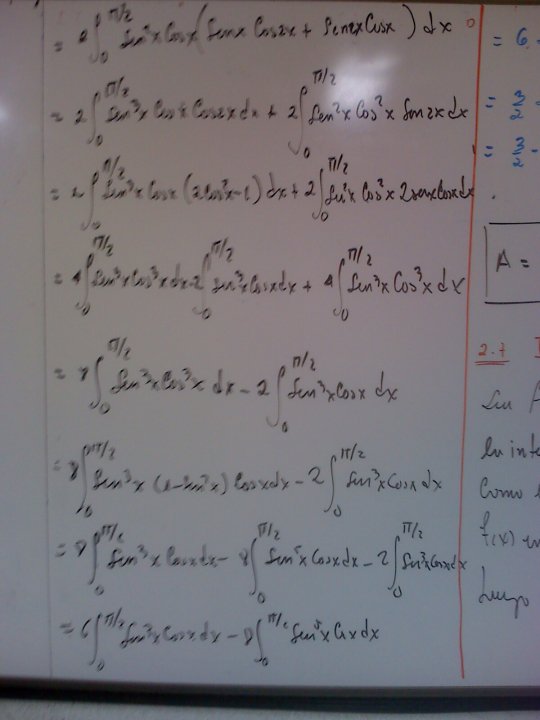 = 2∫₀^{π/2} Sen²x Cosx (Senx Cos2x + Sen2x Cosx) dx
= 2∫₀^{π/2} Sen³x Cosx Cos2x dx + 2∫₀^{π/2} Sen²x Cos²x Sen2x dx
= 2∫₀^{π/2} Sen³x Cosx (2Cos²x-1) dx + 2∫₀^{π/2} Sen²x Cos²x 2senx Cosx dx
= 4∫₀^{π/2} Sen³x Cos³x dx - 2∫₀^{π/2} Sen³x Cosx dx + 4∫₀^{π/2} Sen³x Cos³x dx
= 8∫₀^{π/2} Sen³x Cos³x dx - 2∫₀^{π/2} Sen³x Cosx dx
= 8∫₀^{π/2} Sen³x (1-Sen²x) Cosx dx - 2∫₀^{π/2} Sen³x Cosx dx
= 8∫₀^{π/2} Sen³x Cosx dx - 8∫₀^{π/2} Sen⁵x Cosx dx - 2∫₀^{π/2} Sen³x Cosx dx
= 6∫₀^{π/2} Sen³x Cosx dx - 8∫₀^{π/2} Sen⁵x Cosx dx
= 6
= 3/2
= 3/2 -
A =
2.7
Como
f(x)
Luego